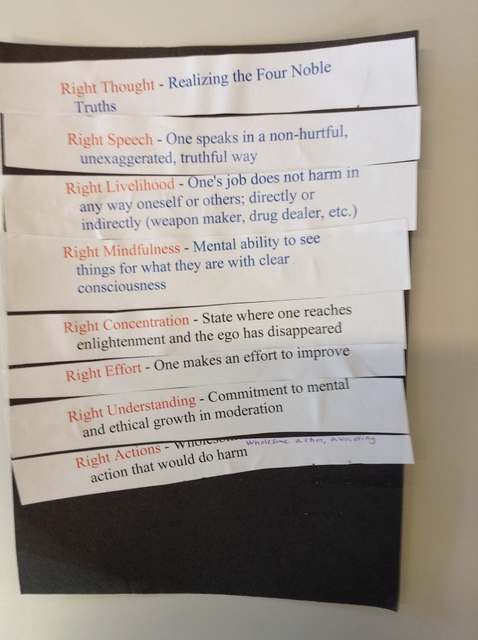 Right Thought - Realizing the Four Noble
Truths
Right Speech - One speaks in a non-hurtful,
unexaggerated, truthful way
Right Livelihood - One's job does not harm in
any way oneself or others; directly or
indirectly (weapon maker, drug dealer, etc.)
Right Mindfulness - Mental ability to see
things for what they are with clear
consciousness
Right Concentration - State where one reaches
enlightenment and the ego has disappeared
Right Effort - One makes an effort to improve
Right Understanding - Commitment to mental
and ethical growth in moderation
Right Actions - Wholesome Wholesome action, avoiding
action that would do harm